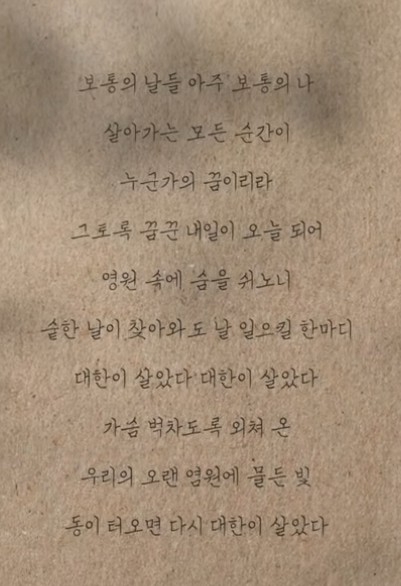 보통의 날들 아주 보통의 나
살아가는 모든 순간이
누군가의 꿈이리라
그토록 꿈꾼 내일이 오늘 되어
영원 속에 숨을 쉬노니
숱한 날이 찾아와도 날 일으킬 한마디
대한이 살았다 대한이 살았다
가슴 벅차도록 외쳐 온
우리의 오랜 염원에 물든 빛
동이 터오면 다시 대한이 살았다